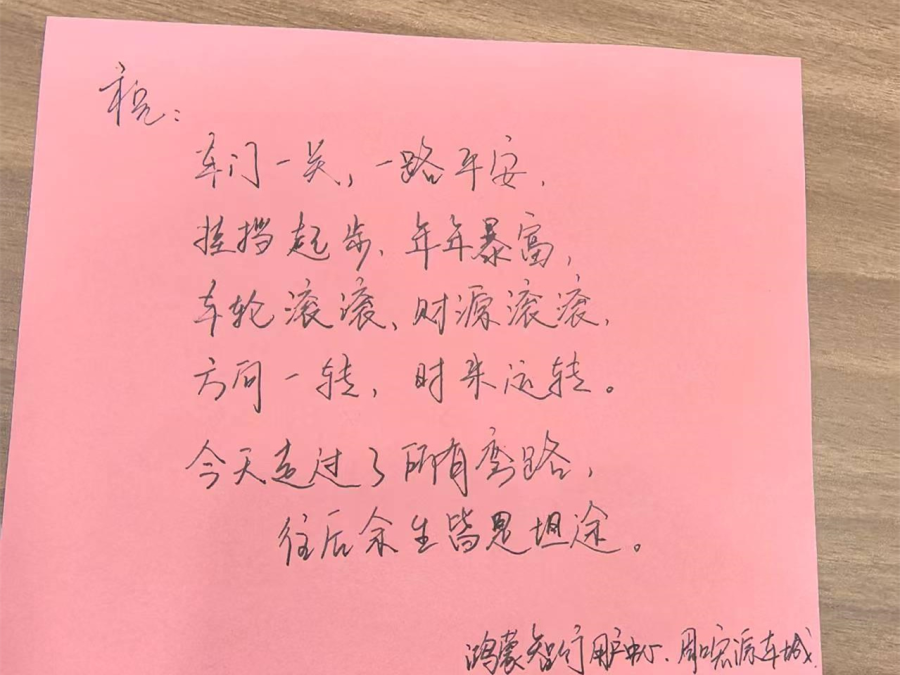 祝：
车门一关，一路平安，
挂挡起步，年年暴富，
车轮滚滚、财源滚滚，
方向一转，时来运转。
今天走过了所有弯路，
往后余生皆是坦途。
鸿蒙智行用户中心·周口宏源车城